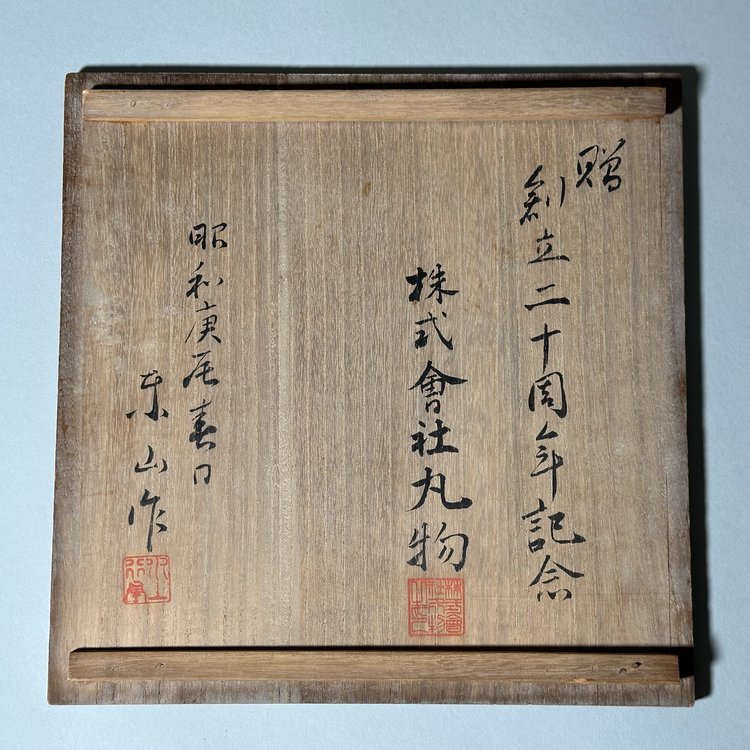 贈
創立二十周年記念
株式會社丸物
昭和庚辰春日
東山作